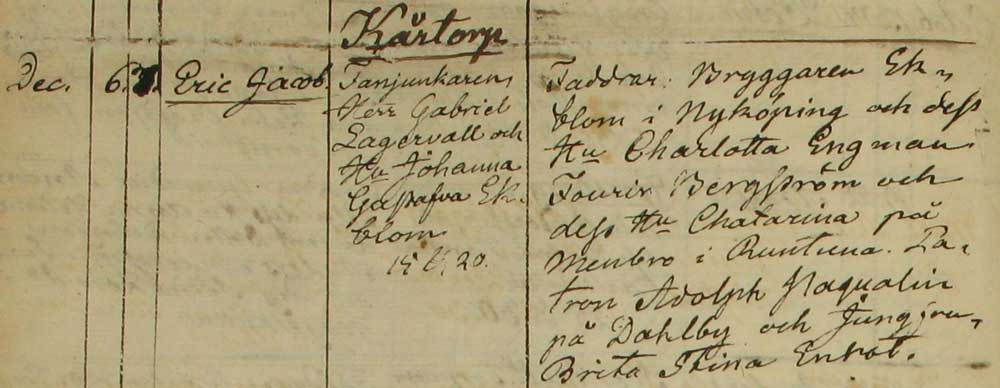 Kärtorp
Dec. 6. Eric Jacob.
Fanjunkaren,
Herr Gabriel
Lagervall och
Hu Johanna
Gustafva Ek-
blom.
Faddrar: Bryggaren Ek-
blom i Nyköping och dess
Hu Charlotta Engman.
Fourir Bergström och
dess Hu Chatarina på
Menbro i Runtuna. Pa-
tron Adolph
på Dahlby och Jungfru,
Brita Stina